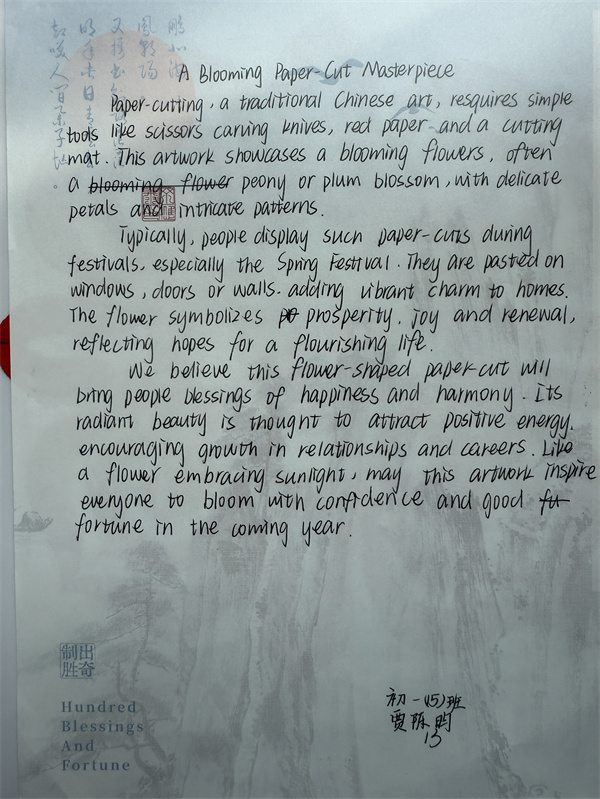 A Blooming Paper-Cut Masterpiece
Paper-cutting, a traditional Chinese art, resquires simple
tools like scissors carving knives, red paper and a cutting
mat. This artwork showcases a blooming flowers, often
a blooming flower peony or plum blossom, with delicate
petals and intricate patterns.
Typically, people display such paper-cuts during
festivals, especially the Spring Festival. They are pasted on
windows, doors or walls. adding vibrant charm to homes.
The flower symbolizes prosperity, joy and renewal,
reflecting hopes for a flourishing life.
We believe this flower-shaped paper-cut will
bring people blessings of happiness and harmony. Its
radiant beauty is thought to attract positive energy.
encouraging growth in relationships and careers. Like
a flower embracing sunlight, may this artwork inspire
everyone to bloom with confidence and good
fortune in the coming year.
出奇
制胜
Hundred
Blessings
And
Fortune
初一(5)班
贾陈昀
13